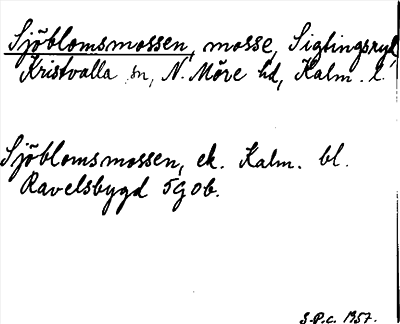 Sjöblomsmossen, mosse, Siglingsryd,
Kristvalla sn, N. Möre hd, Kalm. l.
Sjöblomsmossen, ek. Kalm. bl.
Ravelsbygd 5g0b.
S.P.C. 1957.